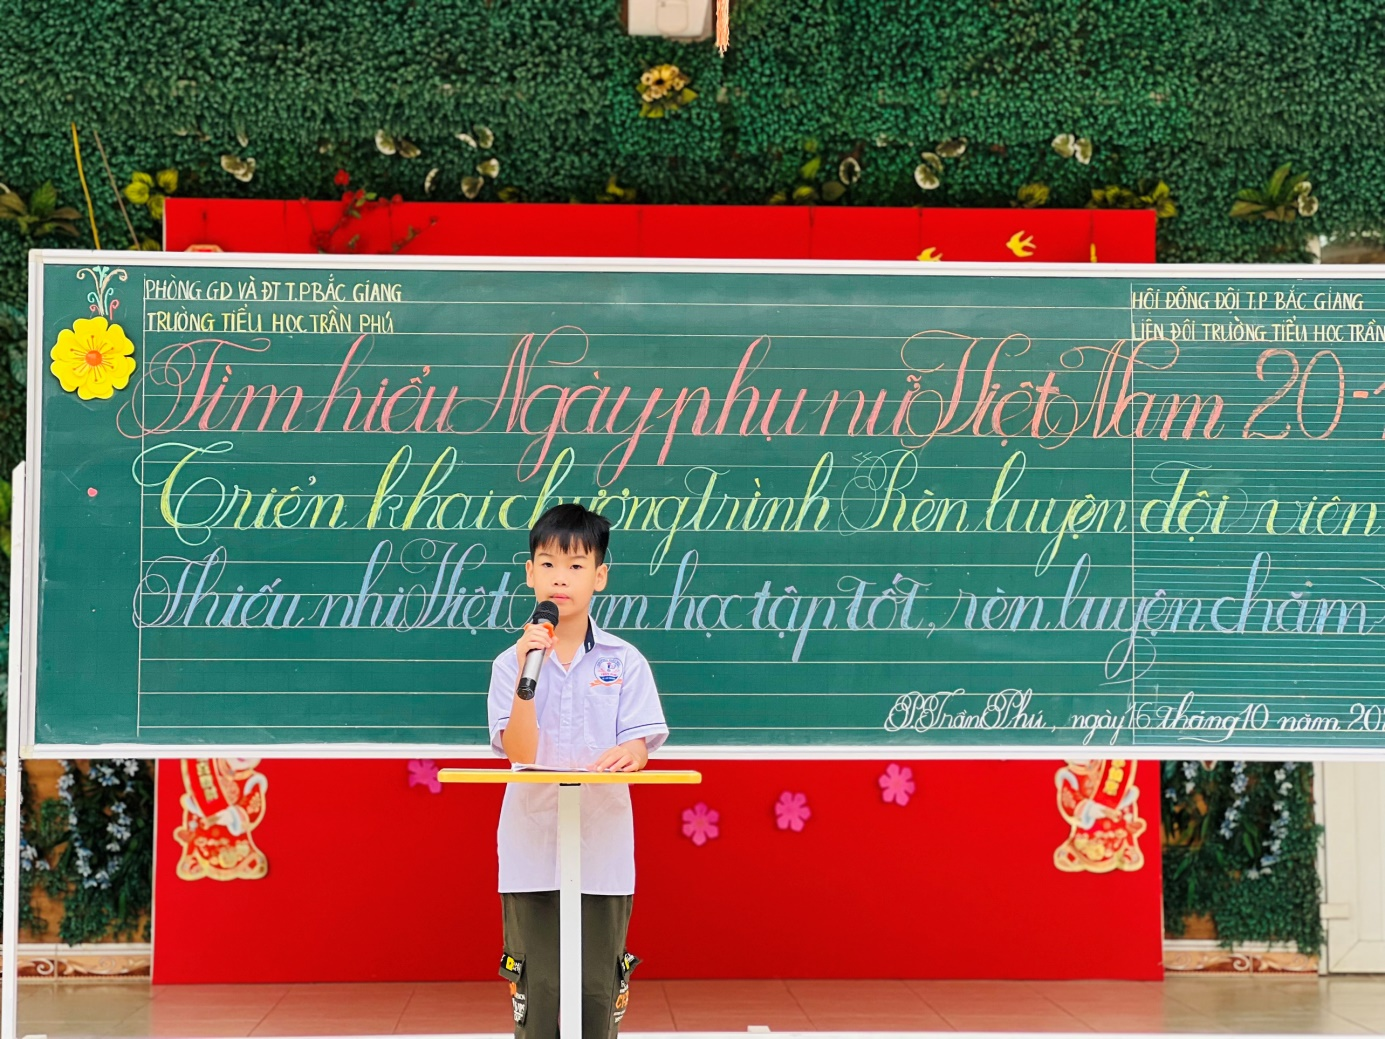 PHÒNG GD VÀ ĐT T.P BẮC GIANG
TRƯỜNG TIỂU HỌC TRẦN PHÚ
HỘI ĐỒNG ĐỘI T.P BẮC GIANG
LIÊN ĐỘI TRƯỜNG TIỂU HỌC TRẦN
Tìm hiểu Ngày phụ nữ Việt Nam 20-1
Triển khai chương trình "Rèn luyện đội viên
Thiếu nhi Việt Nam học tập tốt, rèn luyện chăm
P. Trần Phú, ngày 16 tháng 10 năm 20